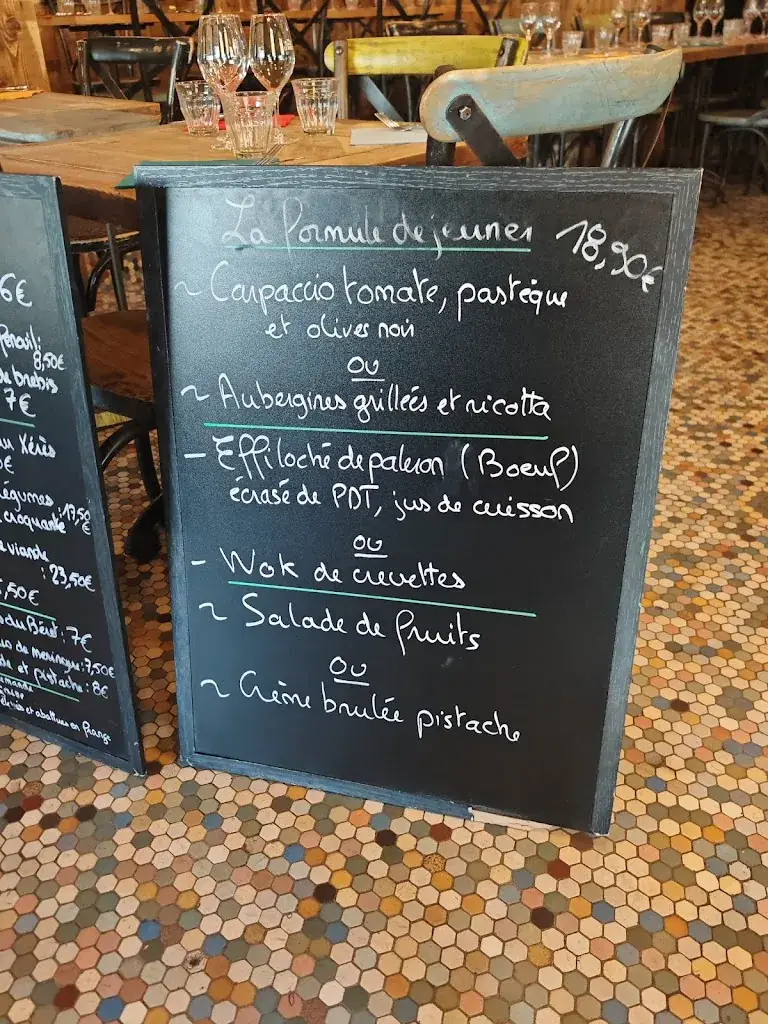 6€
8,50€
de brebis
7€
au Xérès
légumes
croquante : 17,50€
viande
: 23,50€
,50€
du Béret : 7€
de meringue : 7,50€
et pistache : 8€
et abattues en France
La formule dejeuner 18,90€
~ Carpaccio tomate, pastèque
et olives noir
ou
~ Aubergines grillées et ricotta
- Effiloché de paleron (Boeuf)
écrasé de PDT, jus de cuisson
ou
- Wok de crevettes
~ Salade de fruits
ou
~ Crème brulée pistache